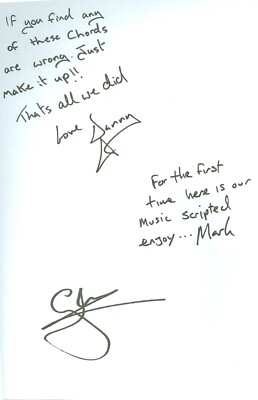 If you find any
of these Chords
are wrong. Just
make it up!!
Thats all we did
Love Danny
For the first
time here is our
Music scripted
enjoy... Mark